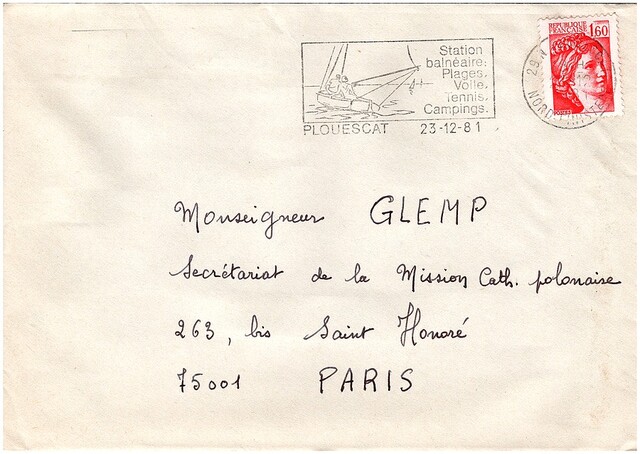 Station
balnéaire.
Plages.
Voile.
Tennis.
Campings.
PLOUESCAT 23-12-81
REPUBLIQUE
FRANÇAISE
1,60
POSTES
29 N
NORD-FINISTE
Monseigneur GLEMP
Secrétariat de la Mission Cath. polonaise
263, bis Saint Honoré
75001 PARIS